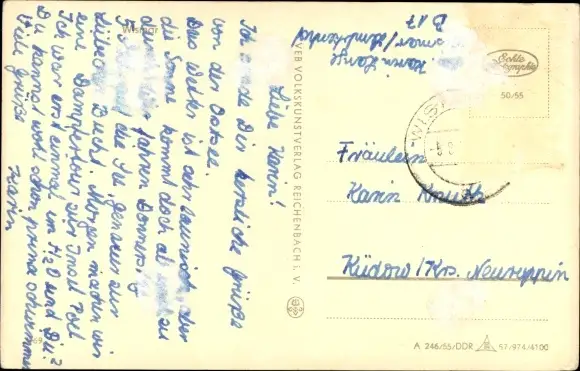 Wismar
Liebe Karin!
Ich sende Dir herzliche Grüße
von der Ostsee.
Das Wetter ist sehr launisch, aber
die Sonne kommt doch ab und zu
durch. Wir fahren Donnerstag
auf die See, genauer zur
Lübecker Bucht. Morgen machen wir
eine Dampfertour zur Insel Poel
Ich war erst einmal im H2O und Du?
Du kannst wohl schon prima schwimmen
Viele Grüße
Karin
VEB VOLKSKUNSTVERLAG REICHENBACH i. V.
Karin Lange
B 17
Echte
Photographie
50/55
WIS
Fräulein
Karin
Küdow/Krs. Neuruppin
A 246/55/DDR 57/974/4100